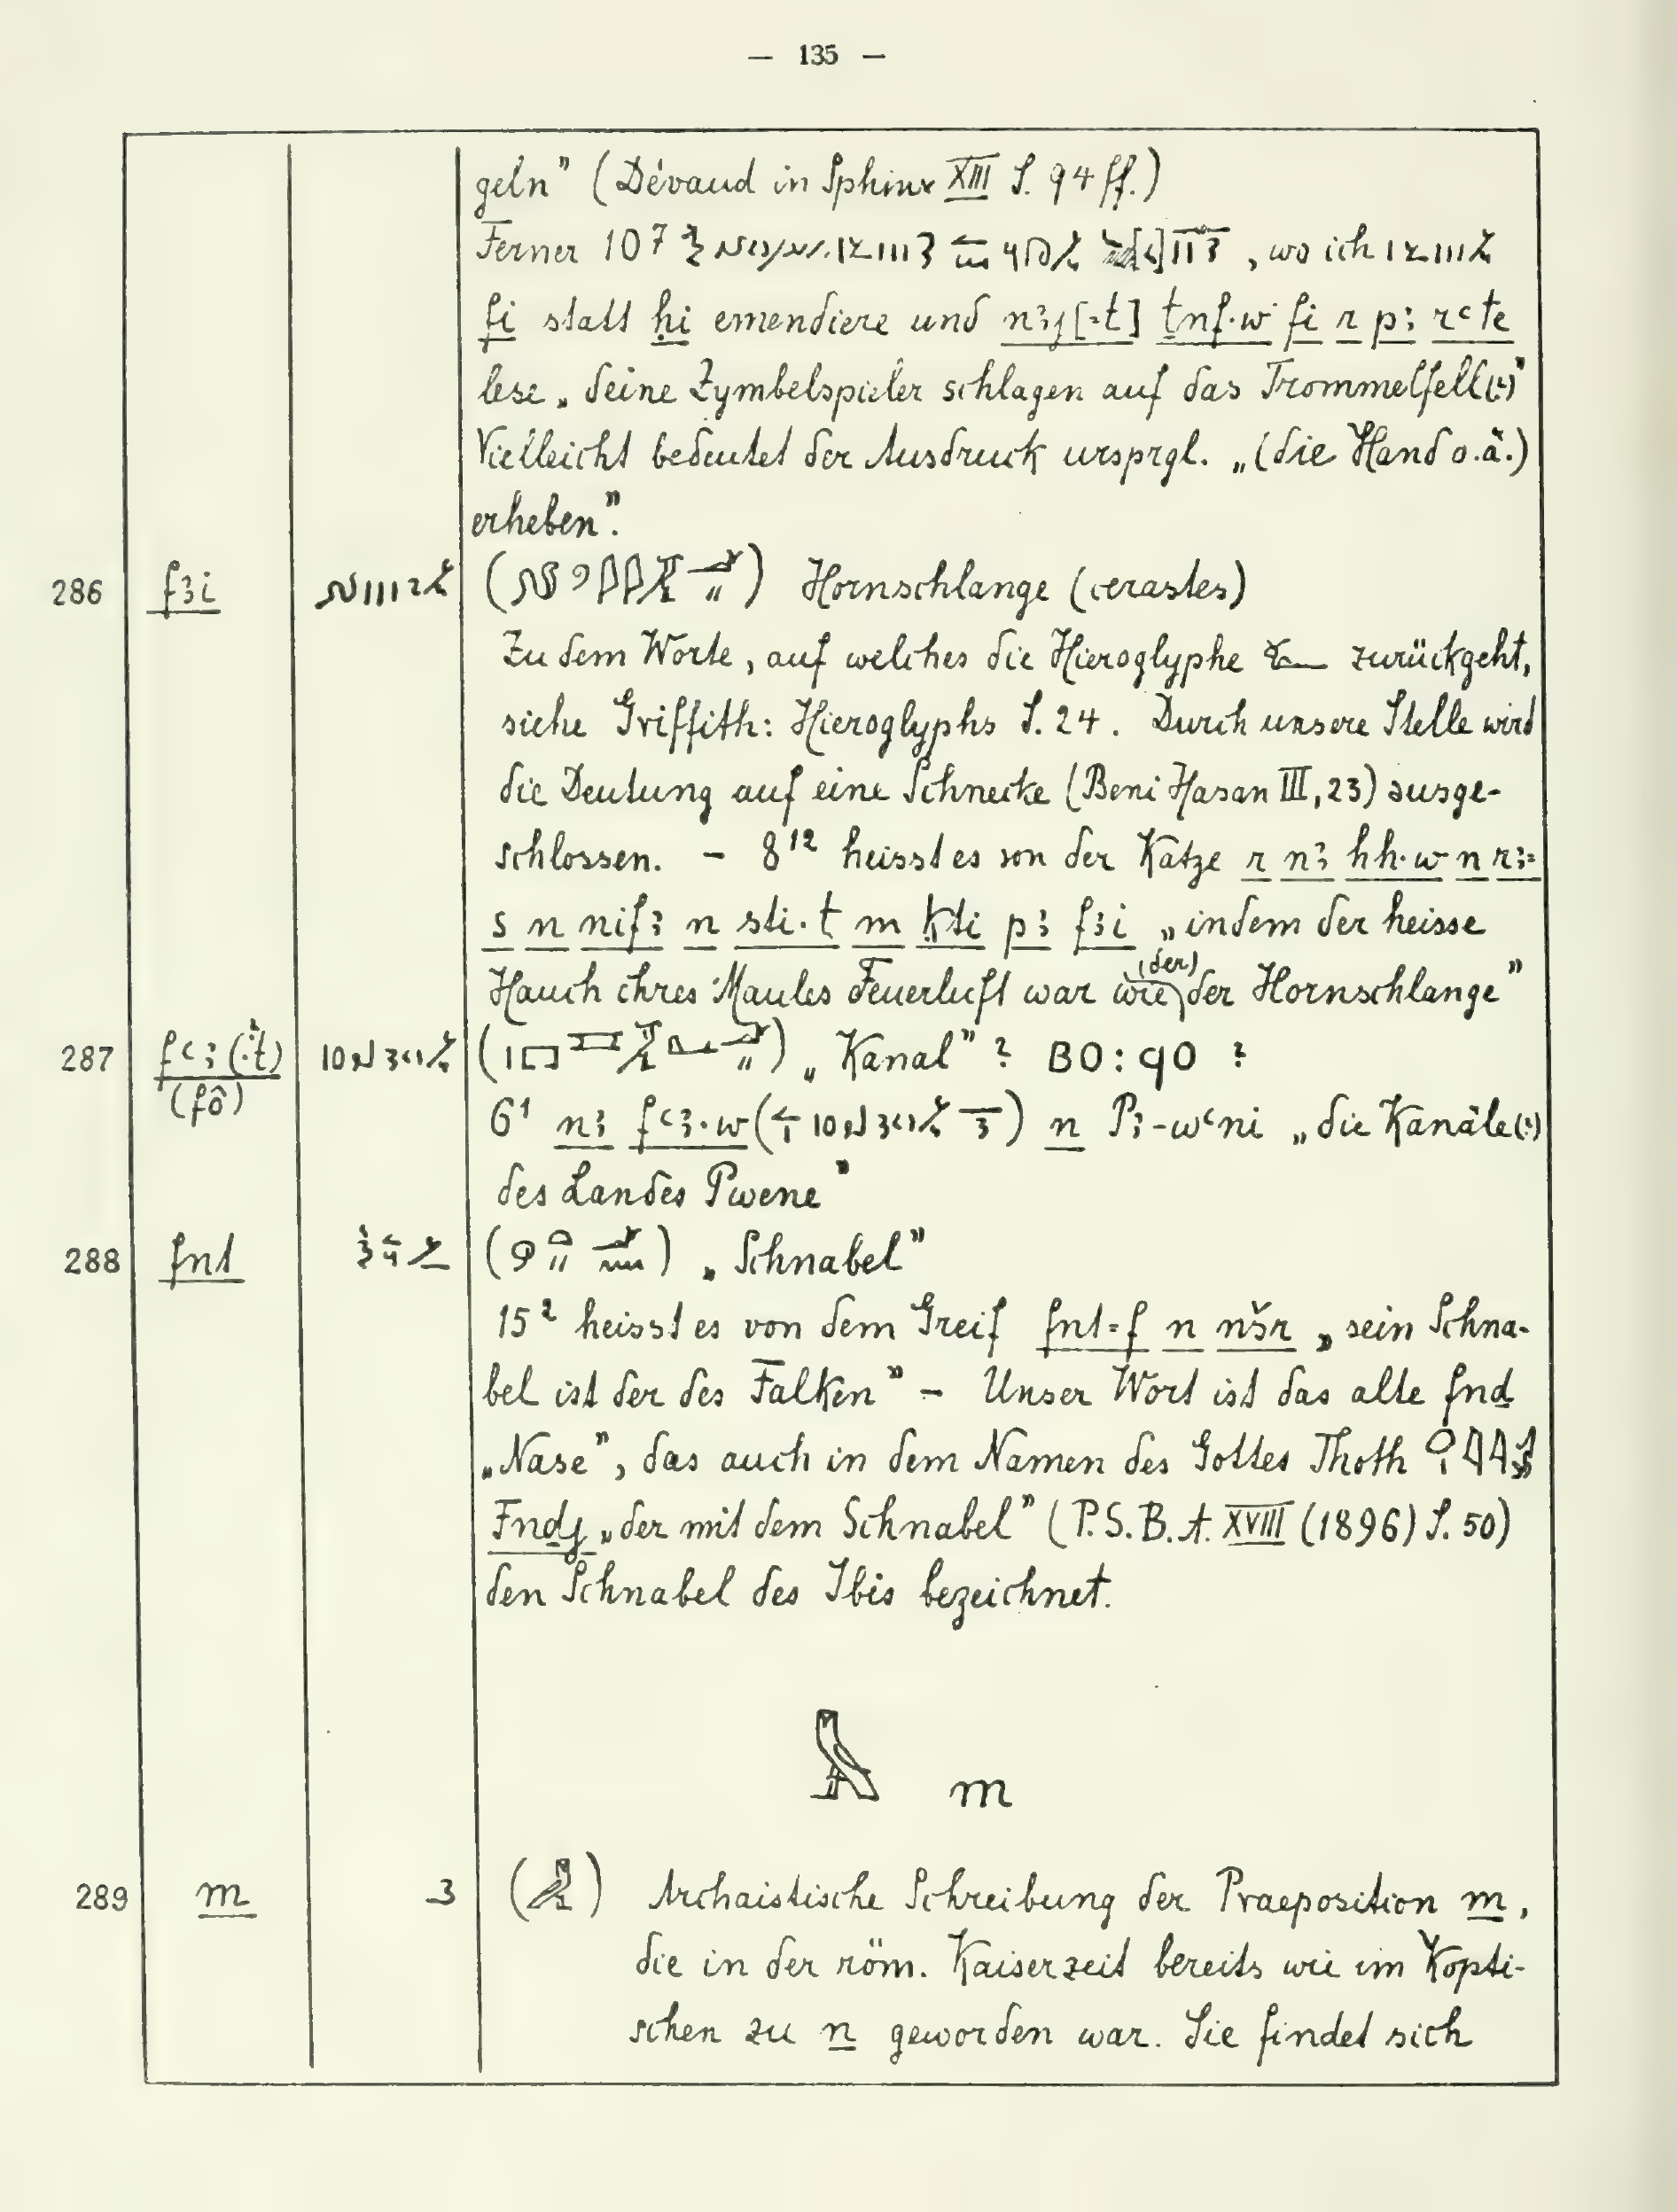 — 135 —
geln” (Dévaud in Sphinx XIII S. 94 ff.)
Ferner 10⁷ , wo ich
fi statt ḥi emendiere und nꜣj[=t] ṯnf·w fi r pꜣ rꜥte
lese „deine Zymbelspieler schlagen auf das Trommelfell(?)”
Vielleicht bedeutet der Ausdruck ursprgl. „(die Hand o.ä.)
erheben”.
286 fꜣi ( ) Hornschlange (cerastes)
Zu dem Worte, auf welches die Hieroglyphe 𓆑 zurückgeht,
siehe Griffith: Hieroglyphs S. 24. Durch unsere Stelle wird
die Deutung auf eine Schnecke (Beni Hasan III, 23) ausge-
schlossen. – 8¹² heisst es von der Katze r nꜣ hh·w n rꜣ=
s n nifꜣ n sti·t m ḳti pꜣ fꜣi „indem der heisse
Hauch ihres Maules Feuerluft war wie (der) der Hornschlange”
287 fꜥꜣ(·t)? (fô) ( ) „Kanal” ? ⲃⲟ : ϥⲟ ?
6¹ nꜣ fꜥꜣ·w ( ) n Pꜣ-wꜥni „die Kanäle(?)
des Landes Pwene”
288 fnt ( ) „Schnabel”
15² heisst es von dem Greif fnt=f n nšr „sein Schna-
bel ist der des Falken” – Unser Wort ist das alte fnḏ
„Nase”, das auch in dem Namen des Gottes Thoth
Fnḏj „der mit dem Schnabel” (P.S.B.A. XVIII (1896) S. 50)
den Schnabel des Ibis bezeichnet.
𓅓 m
289 m (𓅓) Archaistische Schreibung der Praeposition m,
die in der röm. Kaiserzeit bereits wie im Kopti-
schen zu n geworden war. Sie findet sich